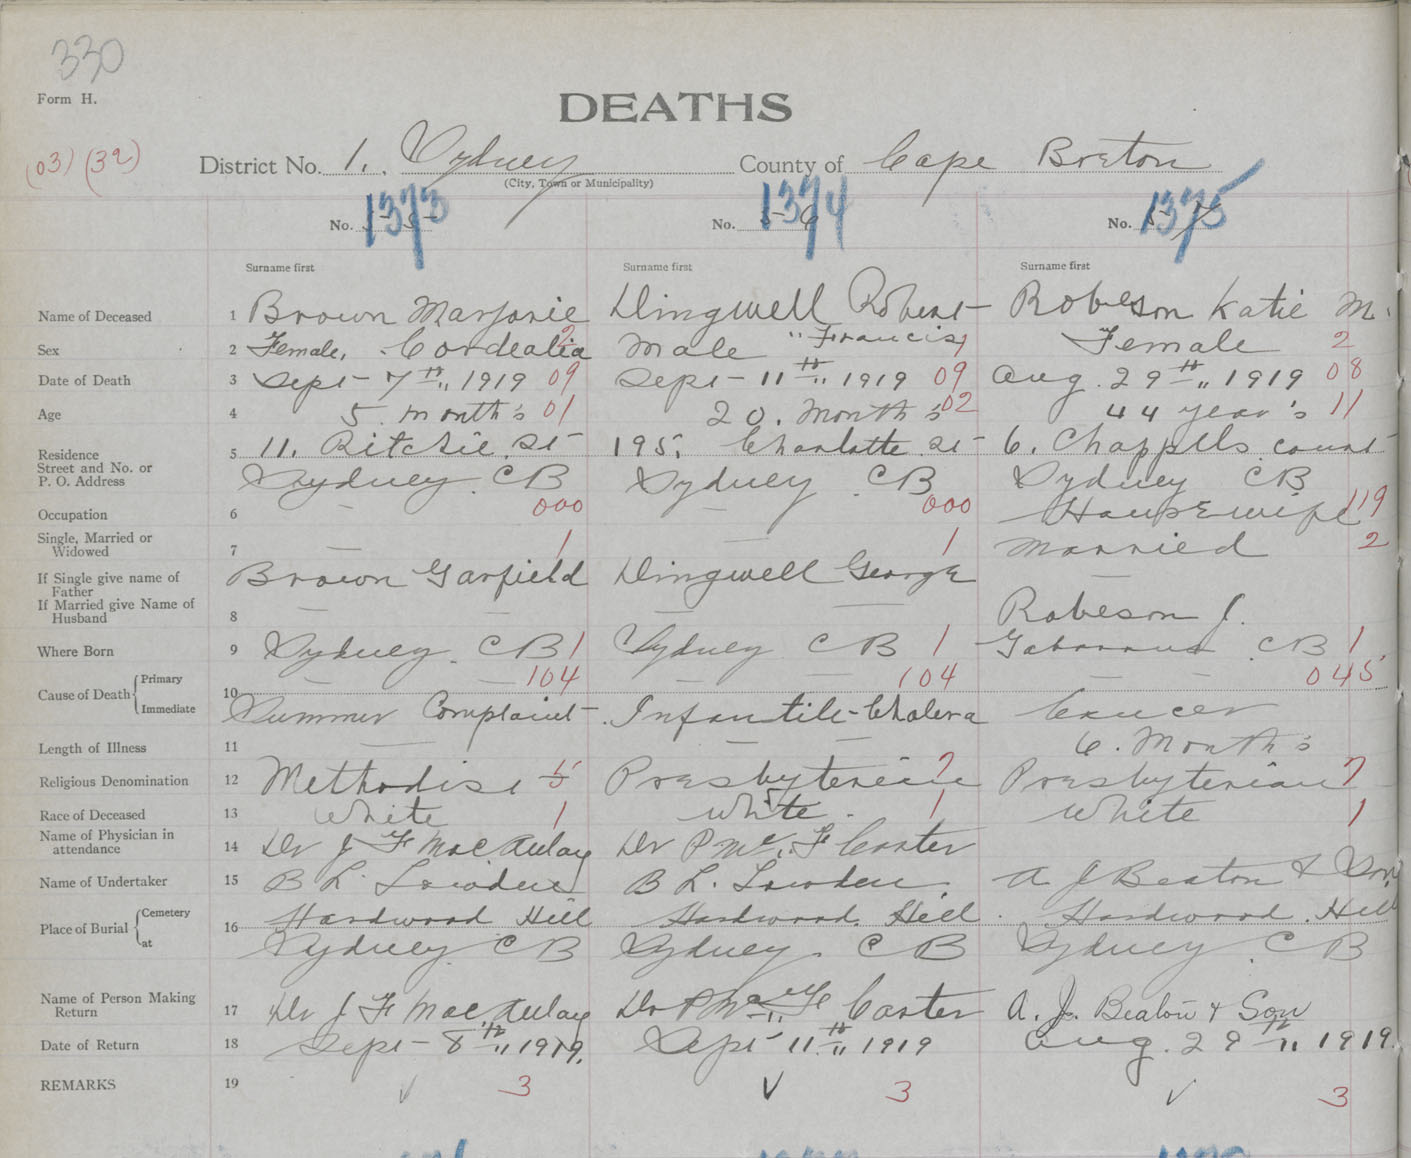 330
Form H.
DEATHS
(03) (32)
District No. 1. Sydney County of Cape Breton
(City, Town or Municipality)
No. 55 1373 No. 56 1374 No. 57 1375
Surname first Surname first Surname first
Name of Deceased 1 Brown Marjorie Dingwell Robert Robeson Katie M.
Sex 2 Female, Cordealia 2 Male " Francis 1 Female 2
Date of Death 3 Sept 7th 1919 09 Sept 11th 1919 09 Aug. 29th 1919 08
Age 4 5 month's 01 20. Month's 02 44 year's 11
Residence 5 11. Ritchie St 195. Charlotte St 6. Chappells court
Street and No. or
P. O. Address Sydney CB Sydney CB Sydney CB
Occupation 6 — 000 — 000 Housewife 119
Single, Married or
Widowed 7 — 1 — 1 Married 2
If Single give name of
Father Brown Garfield Dingwell George —
If Married give Name of
Husband 8 — — — — Robeson J.
Where Born 9 Sydney CB 1 Sydney CB 1 Gabarous CB 1
Cause of Death Primary 10 — — 104 — — 104 — — 045
Immediate Summer Complaint Infantile-Cholera Cancer
Length of Illness 11 — — — 6. Month's
Religious Denomination 12 Methodist 5 Presbyterian 7 Presbyterian 7
Race of Deceased 13 White 1 White 1 White 1
Name of Physician in
attendance 14 Dr J F MacAulay Dr P Mc. F Carter
Name of Undertaker 15 B L. Lowden B L. Lowden A J Beaton & Son
Place of Burial Cemetery 16 Hardwood Hill Hardwood Hill Hardwood Hill
at Sydney CB Sydney CB Sydney CB
Name of Person Making
Return 17 Dr J F MacAulay Dr P Mc F Carter A. J. Beaton & Son
Date of Return 18 Sept 8th 1919. Sept 11th 1919 Aug. 29th 1919.
REMARKS 19 ✓ 3 ✓ 3 ✓ 3